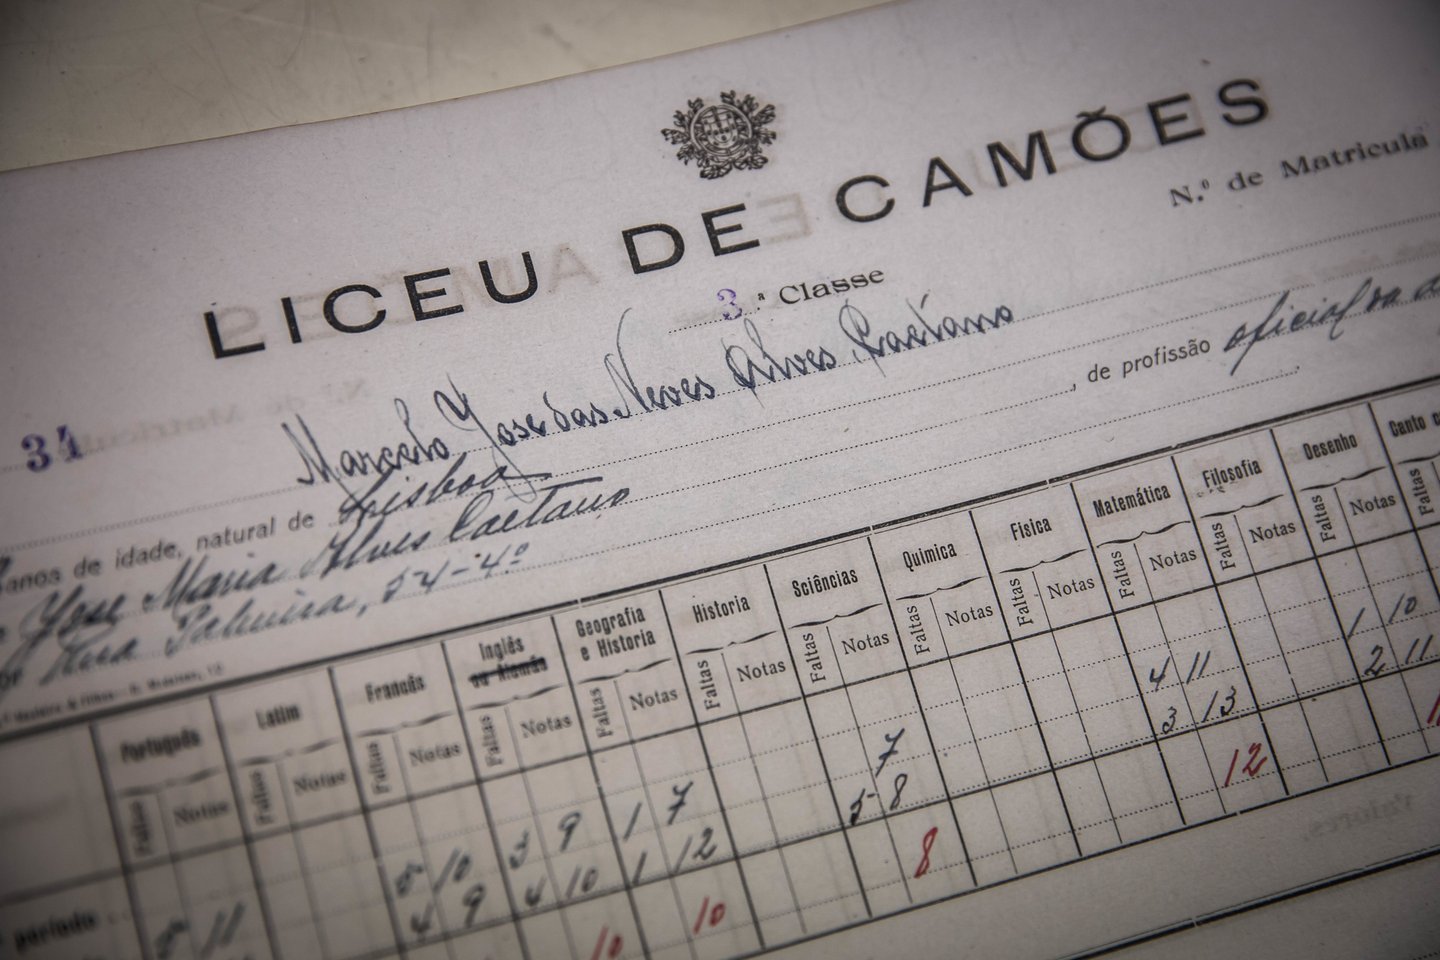 LICEU DE CAMÕES
N.º de Matricula
3.ª Classe
34
Marcelo Jose das Neves Alves Caetano
anos de idade, natural de Lisboa
Jose Maria Alves Caetano, de profissão oficial da
Rua Palmira, 54-4.º
Português Latim Francês Inglês ou Alemão Geografia e Historia Historia Sciências Quimica Fisica Matemática Filosofia Desenho Canto
Faltas Notas Faltas Notas Faltas Notas Faltas Notas Faltas Notas Faltas Notas Faltas Notas Faltas Notas Faltas Notas Faltas Notas Faltas Notas Faltas Notas Faltas
período 5 11 5 10 3 9 1 7 7 4 11 1 10
4 9 4 10 1 12 5 8 3 13 2 11
10 10 8 12